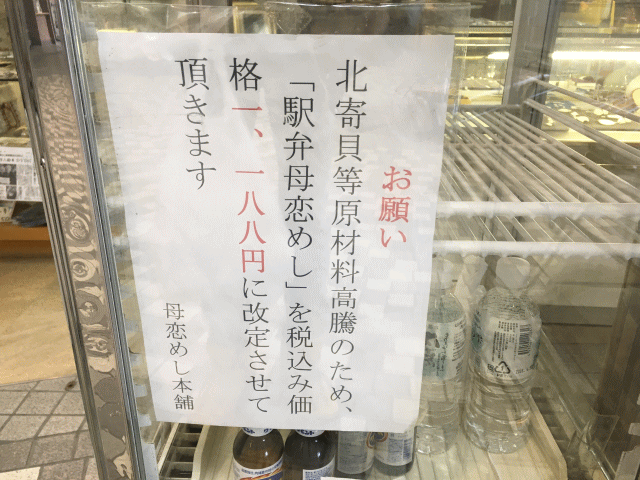 お願い
北寄貝等原材料高騰のため、
「駅弁母恋めし」を税込み価
格一、一八八円に改定させて
頂きます
母恋めし本舗